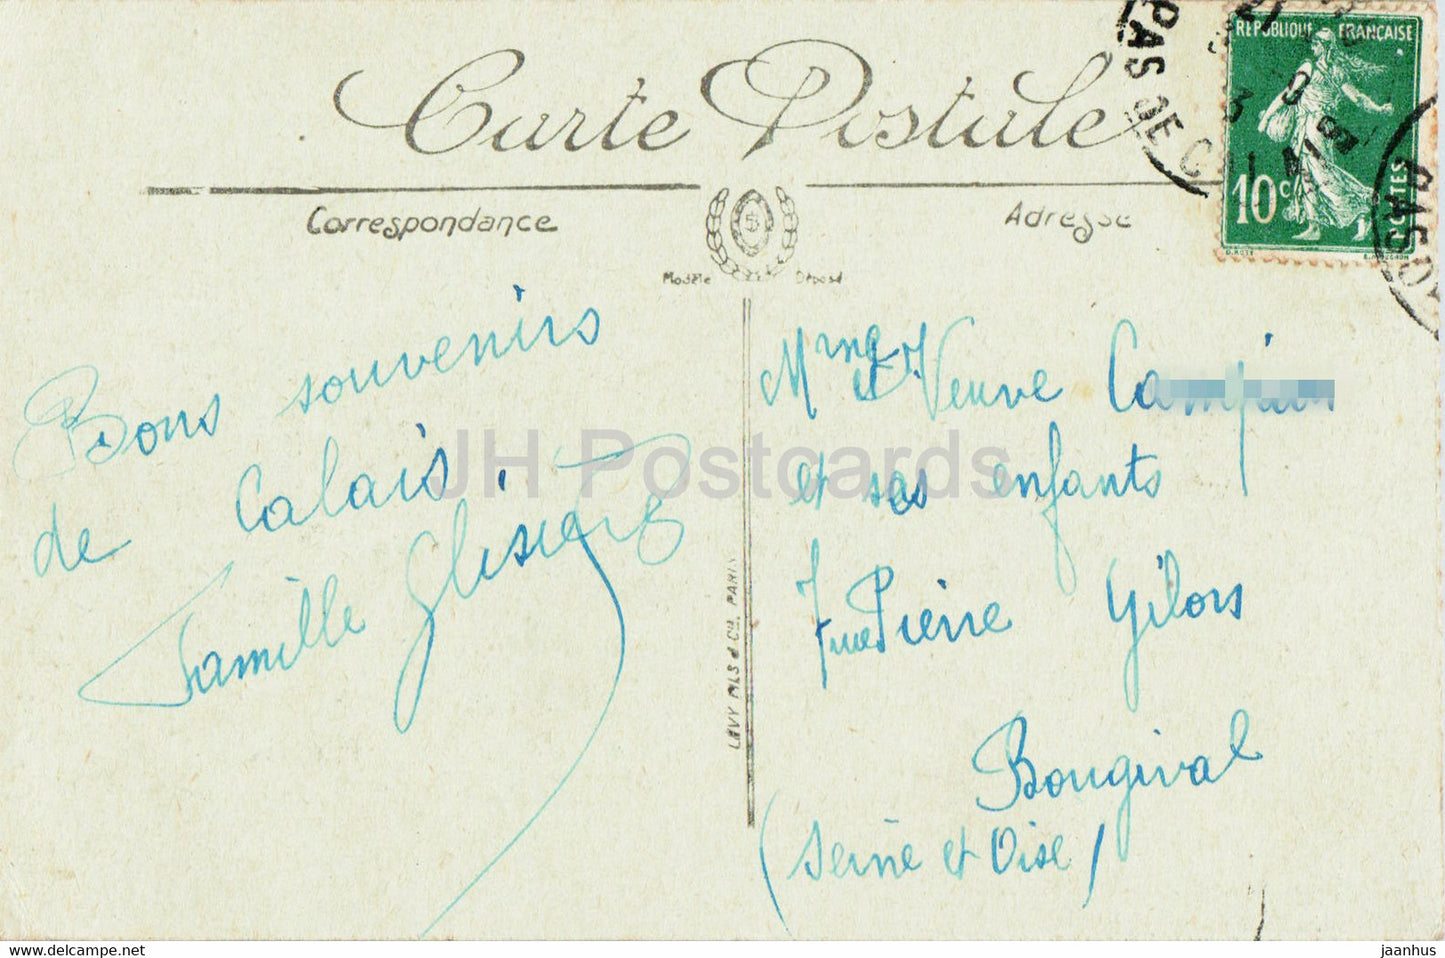 Carte Postale
Correspondance
Adresse
Modèle Déposé
RÉPUBLIQUE FRANÇAISE
10 c
POSTES
PAS DE CALAIS
PAS D
Bons souvenirs
de Calais.
Famille
Mme Veuve
et ses enfants
rue Pierre Gilors
Bougival
(Seine et Oise)
LÉVY FILS & Cie, PARIS
JH Postcards
https://www.delcampe.net
jaanhus